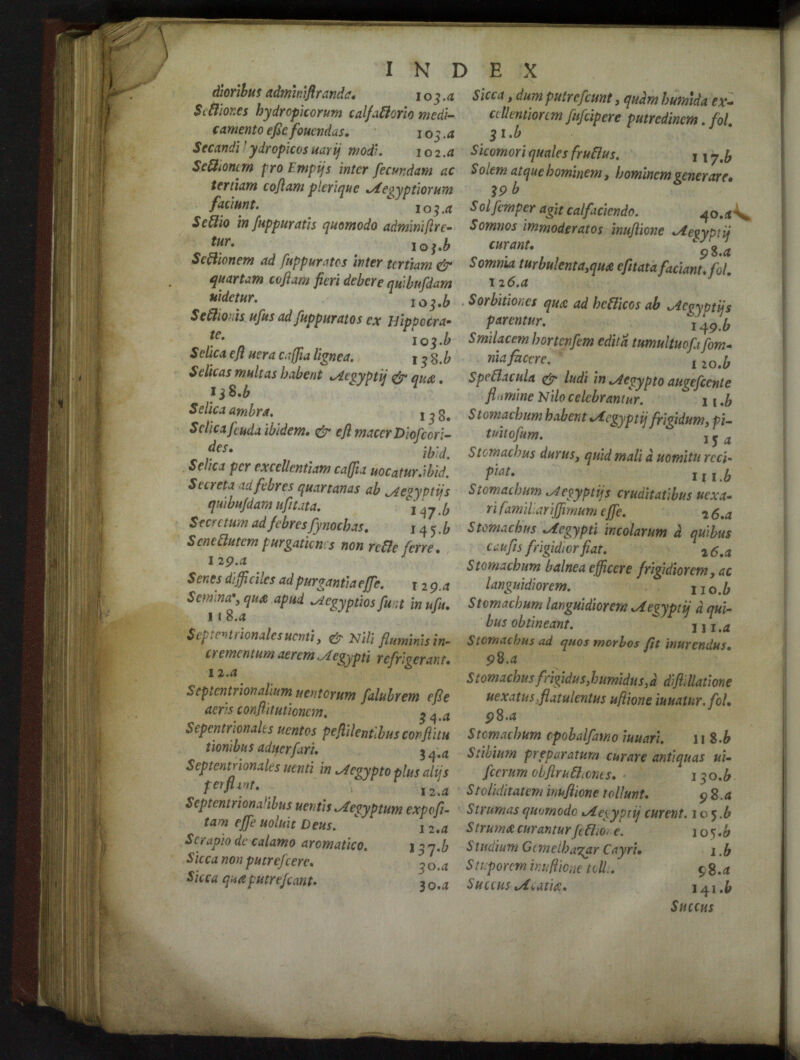 INDEX
dioribus administranda. 103.a
Sectiones hydropicorum calfactorio medi-
camento esse fouendas. 103.a
Secandi hydropicos uarij modi. 102.a
Sectionem pro Empijs inter secundam ac
tertiam costam plerique Aegyptiorum
faciunt. 103.a
Sectio in suppuratis quomodo administre-
tur. 103.b
Sectionem ad suppuratos inter tertiam &
quartam costam fieri debere quibusdam
uidetur. 103.b
Sectionis usus ad suppuratos ex Hippocra-
te. 103.b
Selica est uera cassia lignea. 138.b
Selicas multas habent Aegyptij & quæ.
138.b
Selica ambra. 138.
Selica seuda ibidem. & est macer Dioscori-
des. ibid.
Selica per excellentiam cassia uocatur. ibid.
Secreta ad febres quartanas ab Aegyptijs
quibusdam usitata. 147.b
Secretum ad febres synochas. 145.b
Senectutem purgationes non recte ferre.
129.a
Senes difficiles ad purgantia esse. 129.a
Semina, quæ apud Aegyptios sunt in usu.
118.a
Septentrionales uenti, & Nili fluminis in-
crementum aerem Aegypti refrigerant.
12.a
Septentrionalium uentorum salubrem esse
aeris constitutionem. 34.a
Sepentrionales uentos pestilentibus constitu
tionibus aduersari. 34.a
Septentrionales uenti in Aegypto plus alijs
perflant. 12.a
Septentrionalibus uentis Aegyptum exposi-
tam esse uoluit Deus. 12.a
Serapio de calamo aromatico. 137.b
Sicca non putrescere. 30.a
Sicca quæ putrescant. 30.a
Sicca, dum putrescunt, quàm humida ex-
cellentiorem suscipere putredinem. fol.
31.b
Sicomori quales fructus. 117.b
Solem atque hominem, hominem generare.
39 b
Sol semper agit calfaciendo. 40.a
Somnos immoderatos inustione Aegyptij
curant. 98.a
Somnia turbulenta, quæ esitata faciant. fol.
126.a
Sorbitiones quæ ad hecticos ab Aegyptijs
parentur. 149.b
Smilacem hortensem edità tumultuosa som-
nia facere. 120.b
Spectacula & ludi in Aegypto augescente
flumine Nilo celebrantur. 11.b
Stomachum habent Aegyptij frigidum, pi-
tuitosum. 15 a
Stomachus durus, quid mali à uomitu reci-
piat. 111.b
Stomachum Aegyptijs cruditatibus uexa-
ri familiarissimum esse. 26.a
Stomachus Aegypti incolarum à quibus
causis frigidior fiat. 26.a
Stomachum balnea efficere frigidiorem, ac
languidiorem. 110.b
Stomachum languidiorem Aegyptij à qui-
bus obtineant. 111.a
Stomachus ad quos morbos sit inurendus.
98.a
Stomachus frigidus, humidus, à distillatione
uexatus, flatulentus ustione iuuatur. fol.
98.a
Stomachum opobalsamo iuuari. 118.b
Stibium preparatum curare antiquas ui-
scerum obstructiones. 130.b
Stoliditatem inustione tollunt. 98.a
Strumas quomodo Aegyptij curent. 105.b
Strumæ curantur sectione. 105.b
Studium Gemelhazar Cayri. 1.b
Stuporem inustione tolli. 98.a
Succus Acatiæ. 141.b
Succus